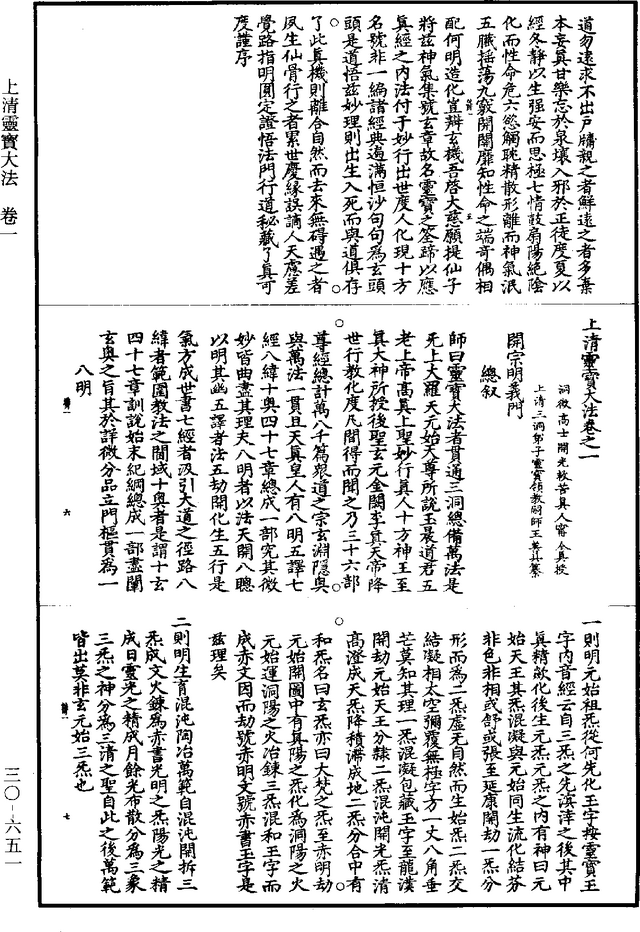 道勿遠求不出戶牖親之者鮮遠之者多棄
本妄真甘樂忘於泉壤入邪於正徒度夏以
經冬靜以生強安而思極七情鼓扇陽絕陰
化而性命危六慾觸耽精散形離而神氣泯
五臟搖蕩九竅開闔靡知性命之端奇偶相
配何明造化豈辯玄機吾啓大慈願提仙子
將茲神氣集號玄章故名靈寶之筌蹄以應
真經之內法付于妙行出世度人化現十方
名號非一編諸經典遍滿恒沙句句為玄頭
頭是道悟茲妙理則出生入死而與道俱存
了此真機則離合自然而去來無碍遇之者
夙生仙骨行之者累世慶緣誤謫人天處差
覺路指明圓定證悟法門行道秘藏了真可
度謹序
上清靈寶大法卷之一
洞微高士開光救苦真人甯全真授
上清三洞弟子靈寶領教嗣師王契真纂
開宗明義門
總敘
師曰靈寶大法者貫通三洞總備萬法是
死上大羅天元始天尊所說玉晨道君五
老上帝高真上聖妙行真人十方神王至
真大神所授後聖玄元金闕李真天帝降
世行教化度凡間得而聞之乃三十六部
尊經總計萬八千篇眾道之宗玄淵隱奧
與萬法一貫且天真皇人有八明五譯七
經八緯十奧四十七章總成一部究其微
妙皆曲盡其理夫八明者以法天開八聰
以明其幽五譯者法五劫開化生五行是
氣方成世書七經者汲引大道之徑路八
緯者範圍教法之閫域十奧者是謂十玄
四十七章訓說始末紀綱總成一部盡闡
玄奧之旨其於詳微分品立門樞貫為一
八明
一則明元始祖炁從何先化玉字按靈寶玉
字內音經云自三炁之先溟涬之後其中
真精敵化後生元炁元炁之內有神曰元
始天王其炁混凝與元始同生流化結芬
非色非相或舒或張至延康開劫一炁分
形而為二炁虛无自然而生始炁二炁交
結凝相太空彌覆無極字方一丈八角垂
芒莫知其理一炁混凝包藏玉字至龍漢
開劫元始天王分隸二炁混沌開光炁清
高澄成天炁降積滯成地二炁分合中有
和炁名曰玄炁亦曰大梵之炁至赤明劫
元始開圖中有真陽之炁化為洞陽之火
元始運洞陽之火冶鍊三炁混和玉字而
成赤文因而劫號赤明文號赤書玉字是
茲理矣
二則明生育混沌陶冶萬範自混沌開拆三
炁成文火鍊為赤書光明之炁陽光之精
成日靈光之精成月餘光布散分為三象
三炁之神分為三清之聖自此之後萬範
皆出莫非玄元始三炁也
上清靈寶大法 卷一
三〇-六五一
五
六
七